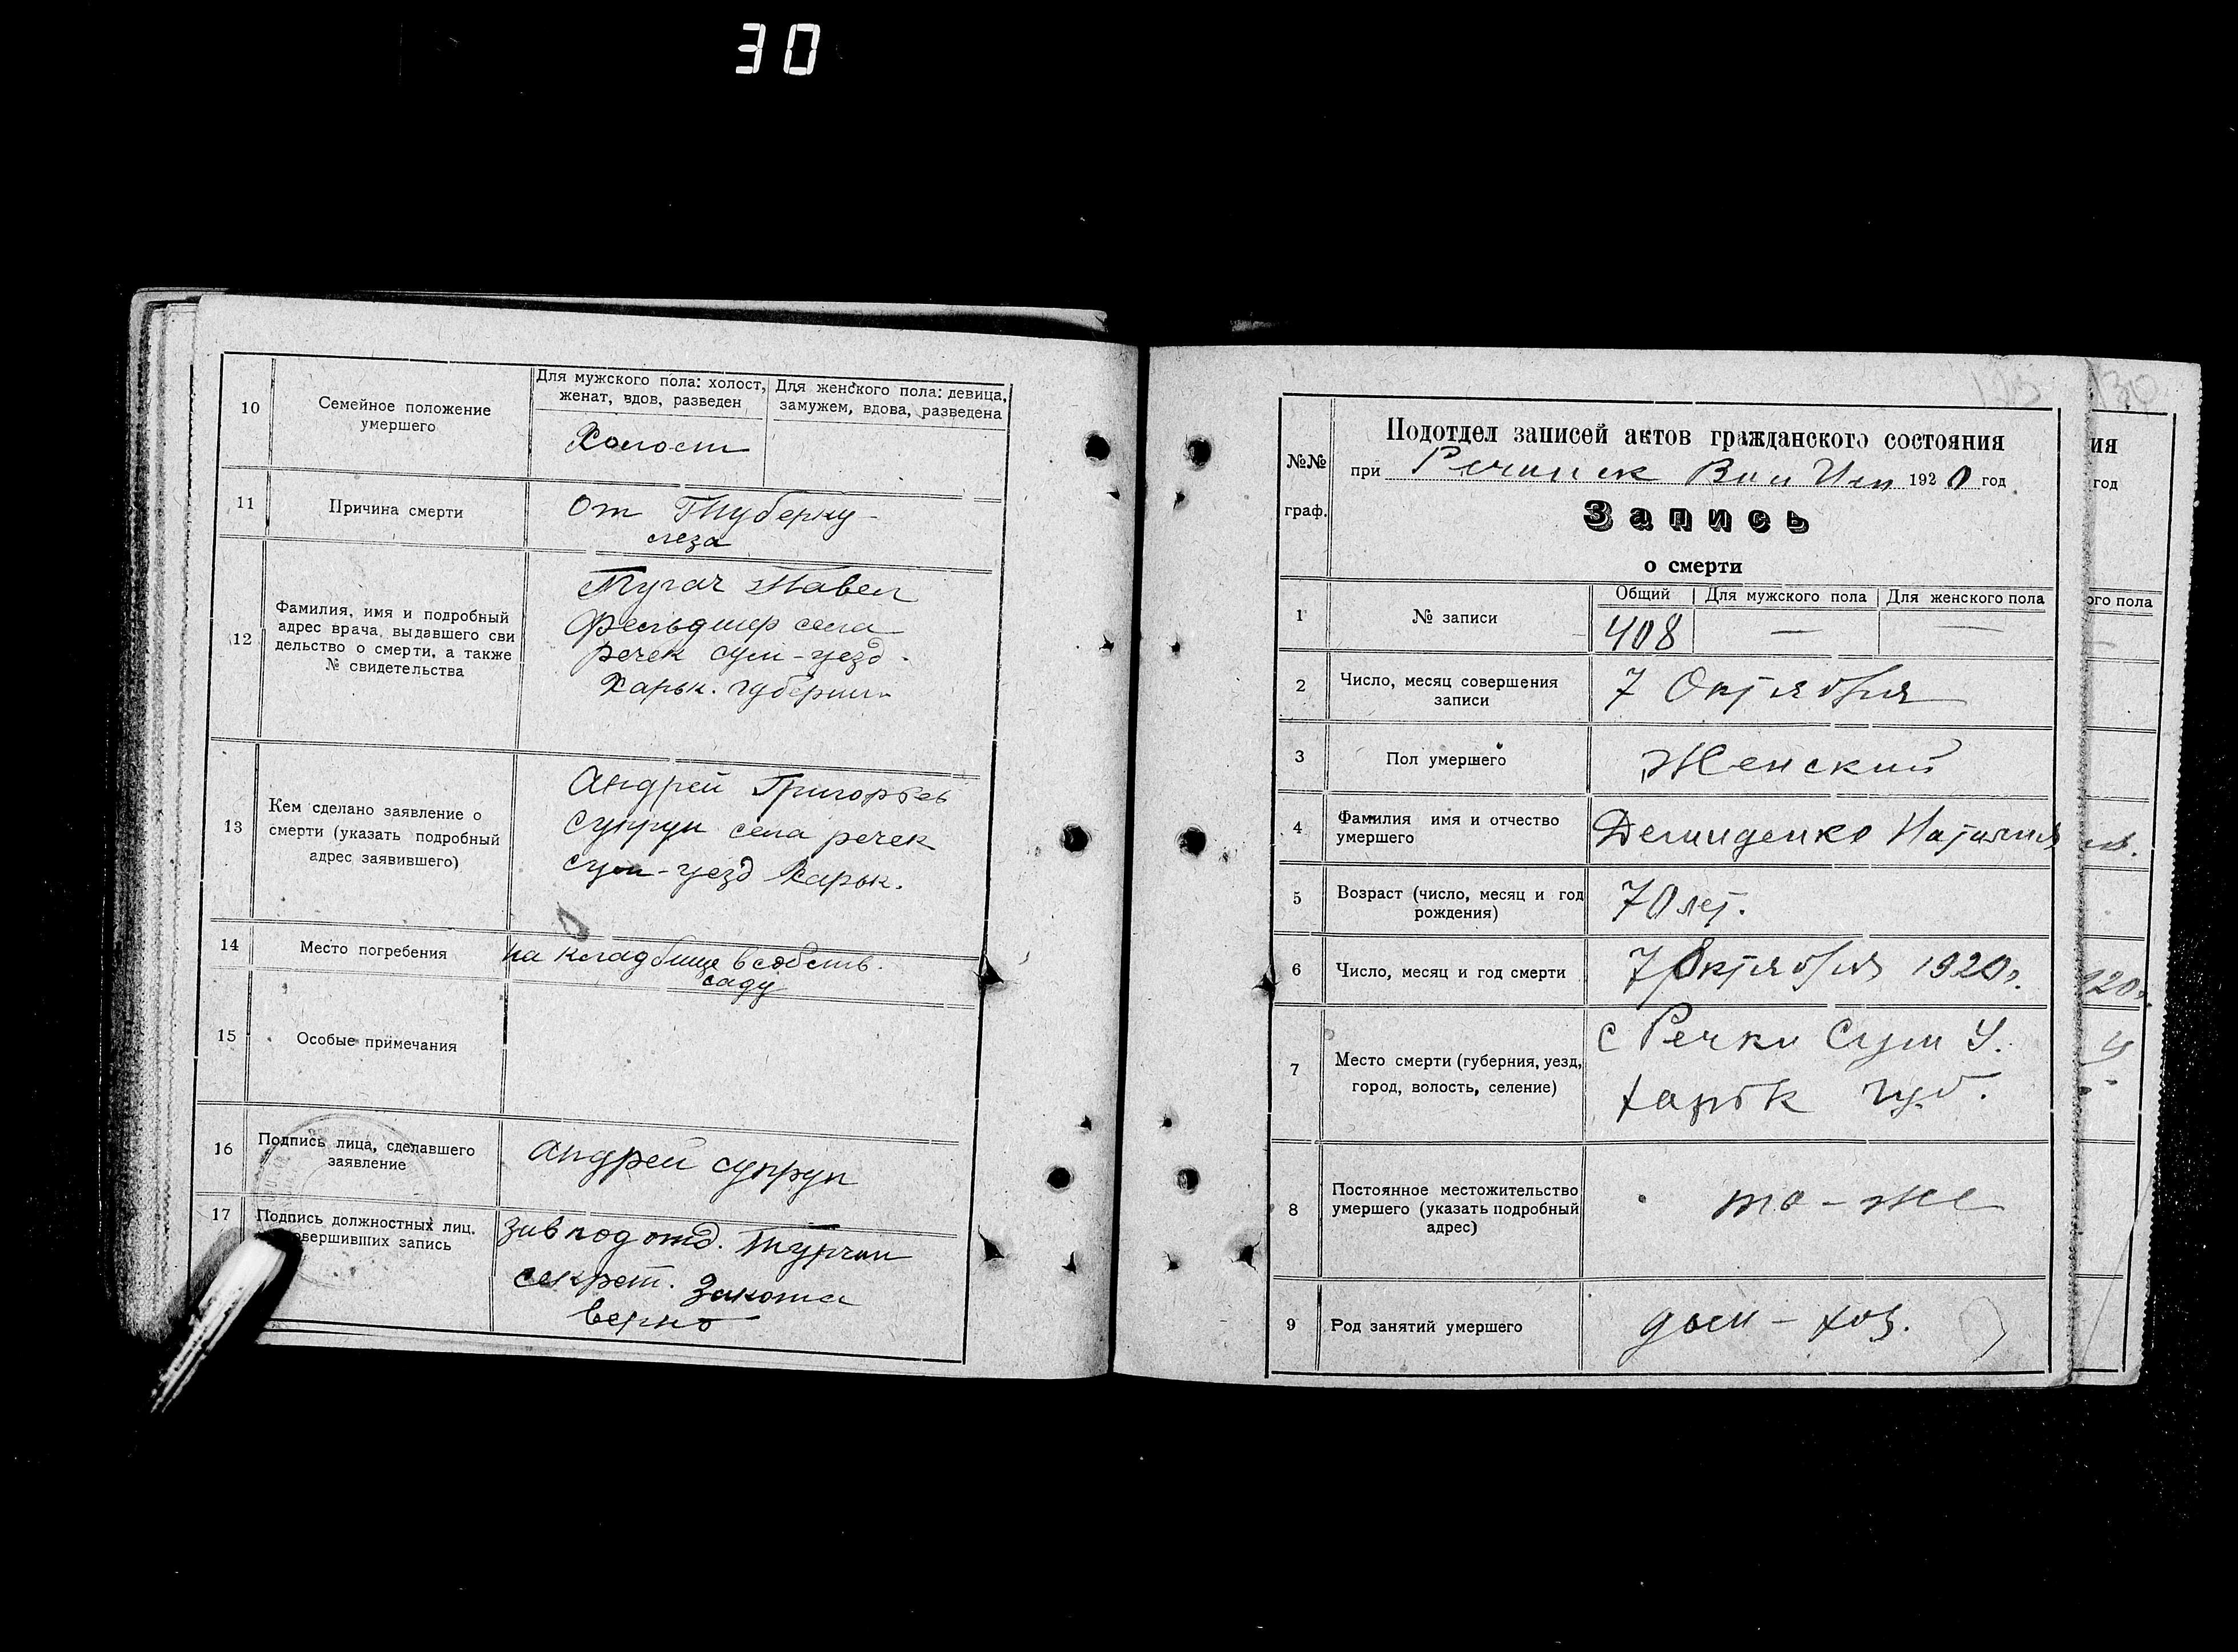 30
10
Семейное положение
умершего
Для мужского пола: холост,
женат, вдов, разведен
Для женского пола: девица,
замужем, вдова, разведена
Холост
11
Причина смерти
От Туберку-
леза
12
Фамилия, имя и подробный
адрес врача, выдавшего сви
дельство о смерти, а также
№ свидетельства
Павел
Фельдшер села
речек сум-уезд.
Харьк. губернии
13
Кем сделано заявление о
смерти (указать подробный
адрес заявившего)
Андрей Григорьев
Супрун села речек
сум-уезд Харьк.
14
Место погребения
на кладбище в собств.
саду
15
Особые примечания
16
Подпись лица, сделавшего
заявление
Андрей супрун
17
Подпись должностных лиц,
совершивших запись
зав подотд.
секрет.
верно
№№
граф.
Подотдел записей актов гражданского состояния
при Речанск Вол Исп 1920 год
Запись
о смерти
1
№ записи
Общий
Для мужского пола
Для женского пола
408
—
—
2
Число, месяц совершения
записи
7 Октября
3
Пол умершего
Женский
4
Фамилия имя и отчество
умершего
Демиденко Наталия
5
Возраст (число, месяц и год
рождения)
70 лет.
6
Число, месяц и год смерти
7 Октября 1920 г.
7
Место смерти (губерния, уезд,
город, волость, селение)
с Речки Сум У.
Харьк губ.
8
Постоянное местожительство
умершего (указать подробный
адрес)
то-же
9
Род занятий умершего
дом-хоз.
130
ия
год
ого пола
920г.